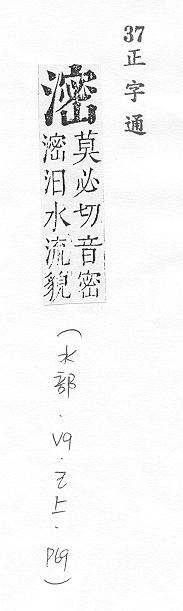 37 正字通
滵
莫必切音密
滵汨水流貌
(水部．V9．巳上．P69)